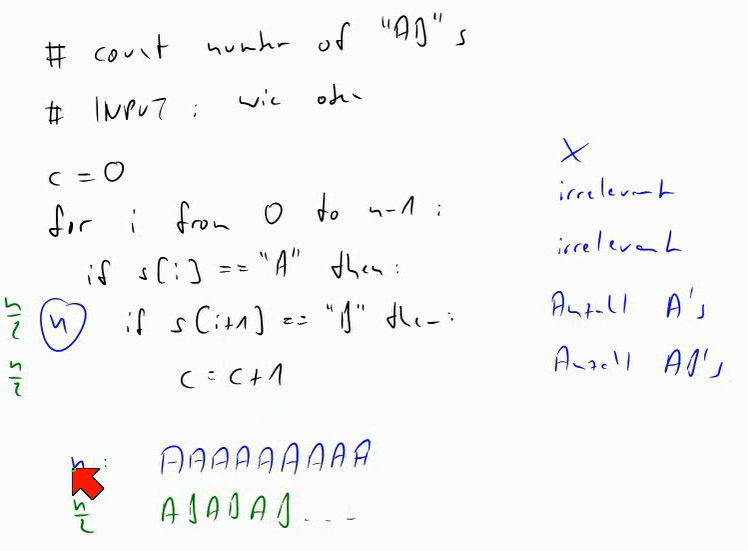 # count number of "AB"s
# INPUT: wie oben
c = 0
X
for i from 0 to n-1:
irrelevant
if s[i] == "A" then:
irrelevant
n/2
n
if s[i+1] == "B" then:
Anzahl A's
n/2
c = c+1
Anzahl AB's
n: AAAAAAAAA
n/2 ABABAB...